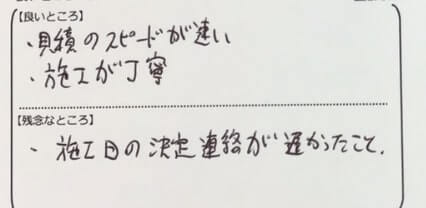 【良いところ】
・見積のスピードが速い
・施工が丁寧
【残念なところ】
・施工日の決定連絡が遅かったこと.